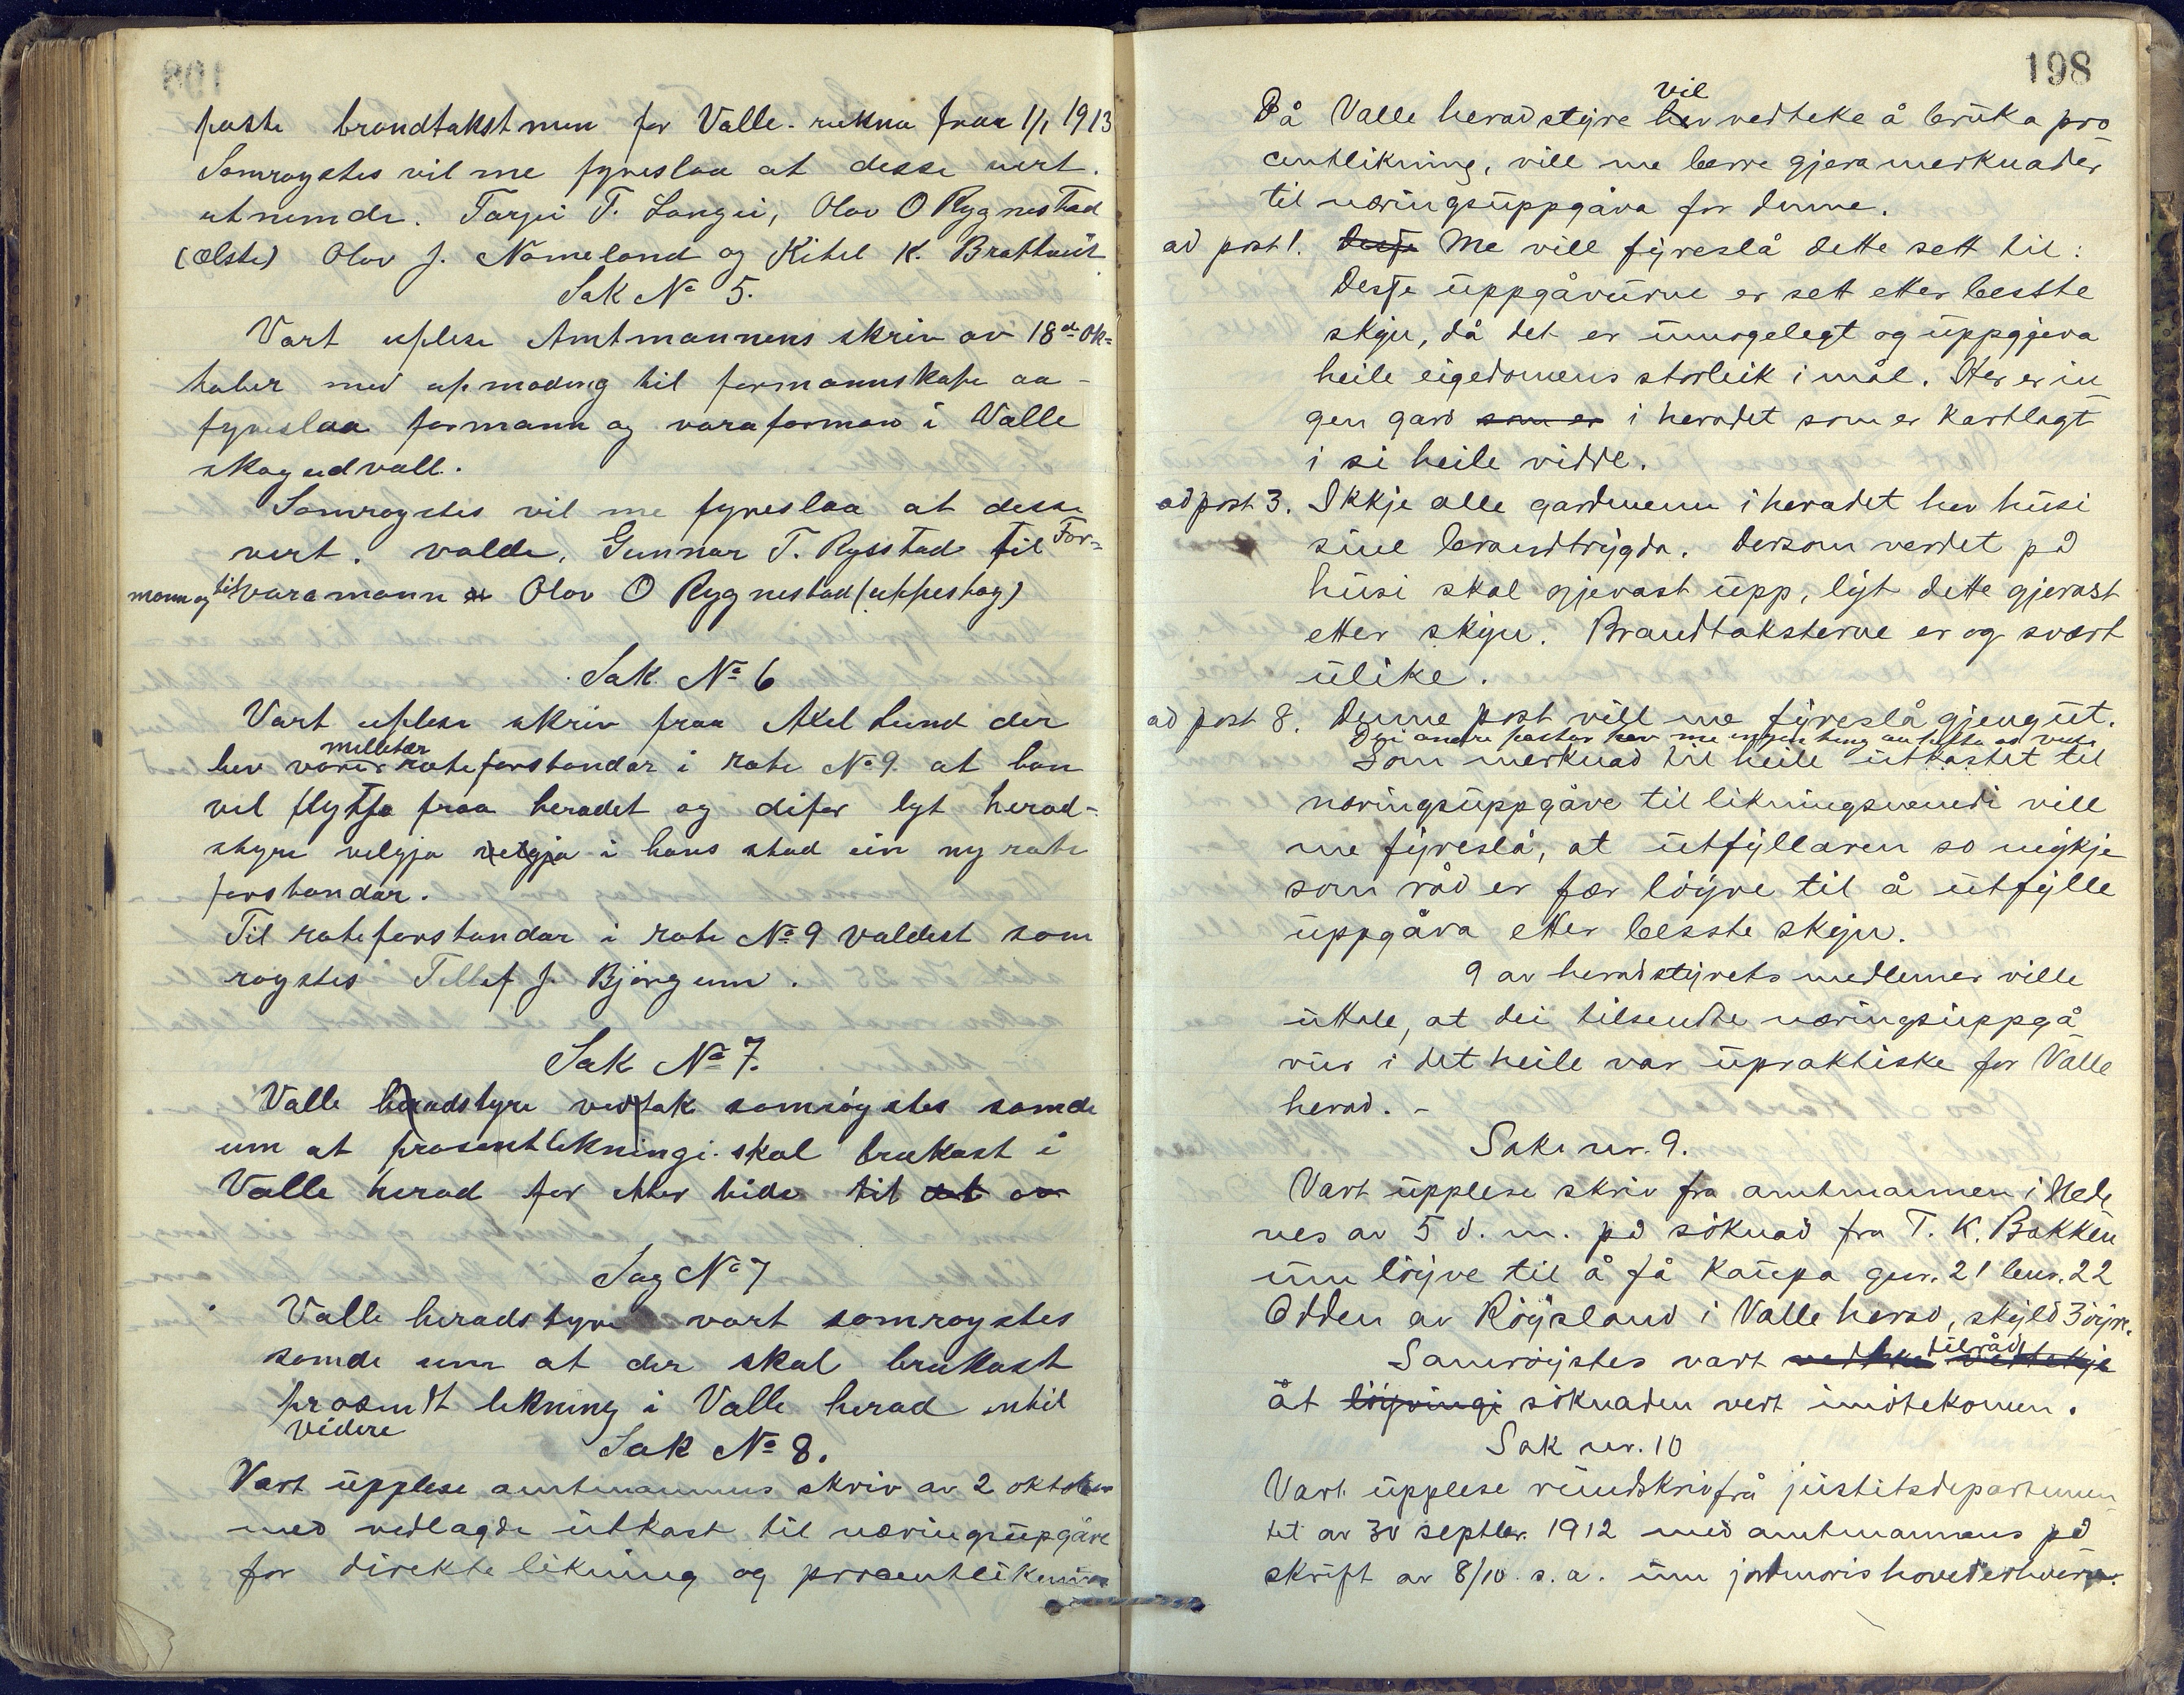 faste brandtakstmen for Valle - rekna fraa 1/1 1913
Samrøystes vil me fyreslaa at desse vert.
utnemde. Tarjei T. Langei, Olav O Rygnestad
(ælste) Olav J. Nomeland og Kitel K. Brottveit
Sak No 5.
Vart uplese Amtmannens skriv av 18de Ok=
tober med upmoding til formannskape aa
fyreslaa formann og varaforman i Valle
skogudvall.
Samrøystes vil me fyreslaa at desse
vert. valde, Gunnar T. Rysstad til For=
mann og til varamann Olav O Rygnestad (uppestog)
Sak No 6
Vart uplese skriv fraa Aksel Lund der
hev vorer militær roteforstandar i rote No 9 at han
vil flytja fraa heradet og difor lyt herad-
styre velgja velgja i hans stad ein ny rote
forstandar.
Til roteforstandar i rote No 9 valdest sam
røystes Tellef J. Björgum.
Sak No 7.
Valle heradstyre vedtak samrøystes samde
um at prosentlikningi skal brukast i
Valle herad for etter tide til det av
Sag No 7
Valle heradstyre vart samrøystes
samde um at der skal brukast
prosendt likning i Valle herad intil
videre
Sak No 8.
Vart üpplese amtmannens skriv av 2 oktober
med vedlagde ütkast til næringsüpgåve
for direkte likning og procentlikning
198
Då Valle heradstyre hev vil vedteke å brüka pro
centlikning, vill me berre gjera merknader
til næringsüppgåva for denne.
ad post 1. Desse Me vill fÿreslå dette sett til:
Desse üppgåvürne er sett etter besste
skjøn, då det er ümogelegt og üppgjeva
heile eigedomens storleik i mål. Her er in
gen gard som er i heradet som er kartlagt
i si heile vidde.
ad post 3. Ikkje alle gardmenn i heradet hev hüsi
sine brandtrÿgda. Dersom verdet på
hüsi skal gjevast üpp, lÿt dette gjerast
etter skjøn. Brandtaksterne er og svært
ülike.
ad post 8. Denne post vill me fÿreslå gjeng üt.
Dei andre postar hev me ingen ting
Som merknad til heile ütkastet til
næringsüppgåve til likningsnemdi vill
me fÿreslå, at ütfÿllaren so mÿkje
som råd er fær löÿve til å ütfÿlle
üppgåva etter besste skjøn.
9 av heradstÿrets medlemer ville
üttale, at dei tilsendte næringsüppgå
vür i det heile var üpraktiske for Valle
herad. -
Sak nr. 9.
Vart üpplese skriv fra amtmannen i Nede
nes av 5 d. m. på söknad fra T. K. Bakken
üm löÿve til å få kaüpa gnr. 21 bnr. 22
Odden av Röÿsland i Valle herad, skÿld 3 öÿre.
Samröÿstes vart vedteke tilråd vedtekje
åt löÿvingi söknaden vert imötekomen.
Sak nr. 10
Vart üpplese ründskriv frå jüstitsdepartemen
tet av 30 septbr. 1912 med amtmannens på
skrift av 8/10 s. a. üm jordmoris